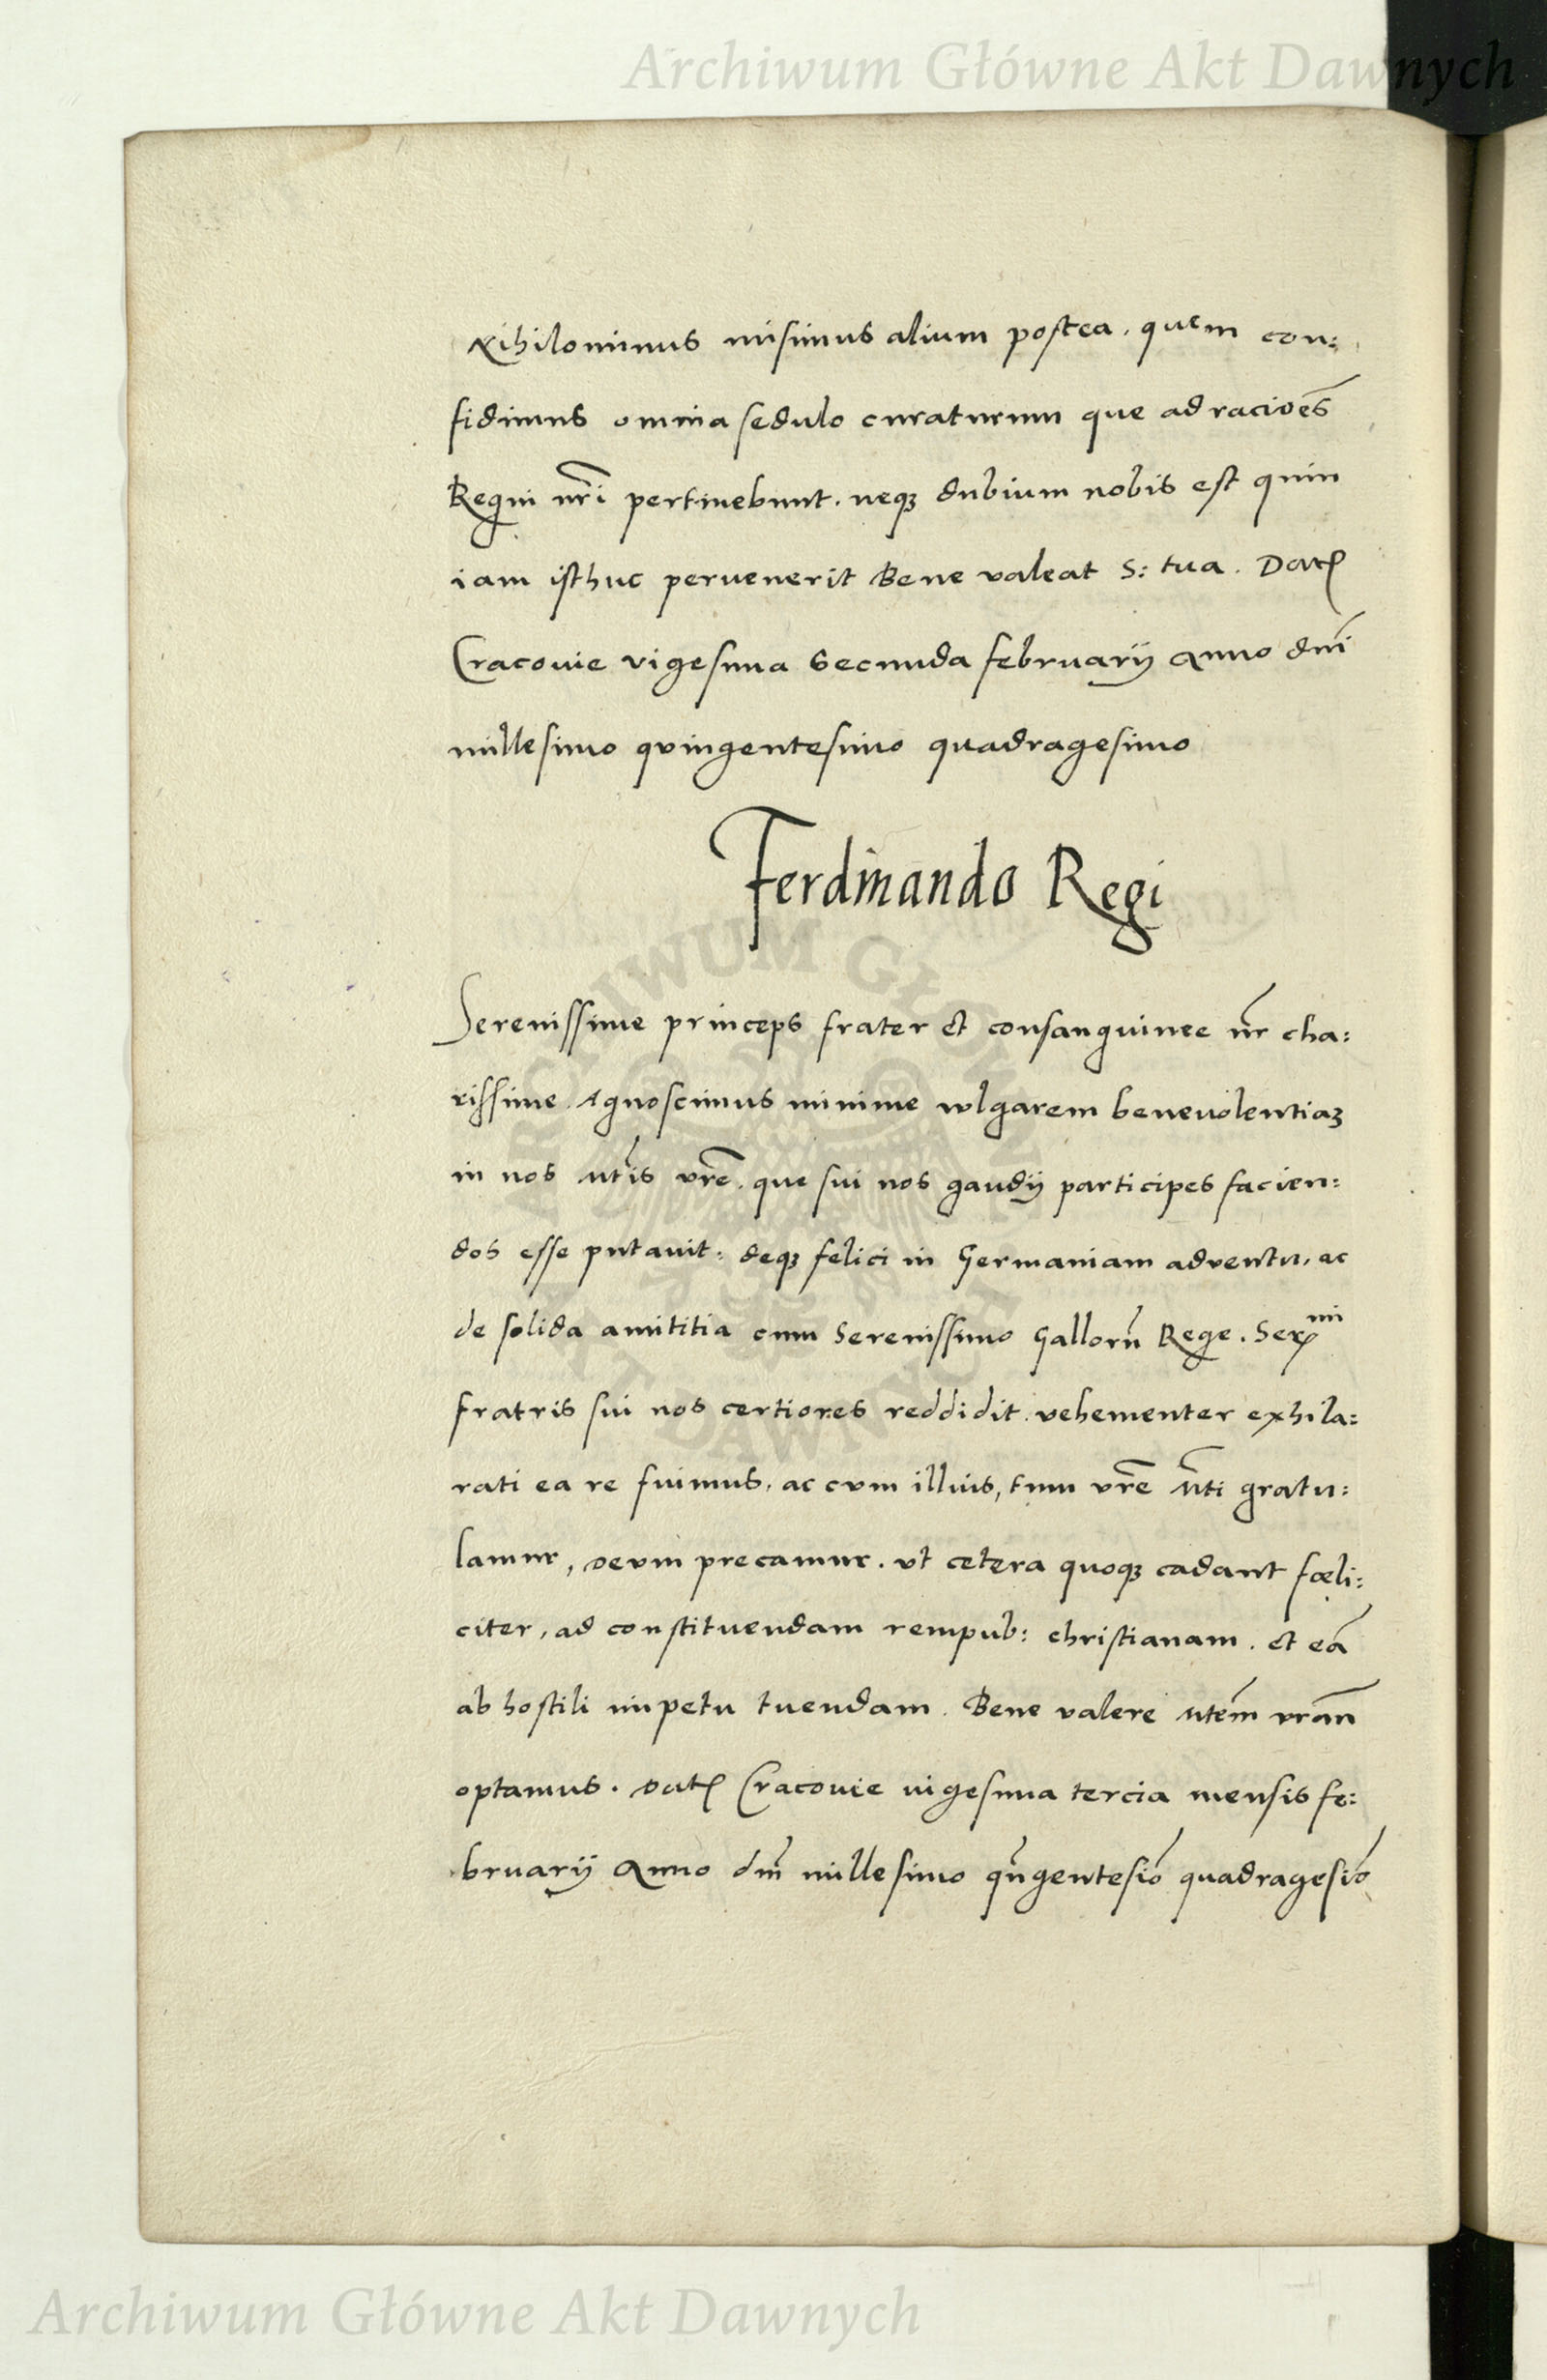 Archiwum Główne Akt Dawnych
Nihilominus misimus alium postea. quem con:
fidimus omnia sedulo curaturum que ad racioēs
Regni nr̃i pertinebunt. neqꝫ dubium nobis est quin
iam isthuc peruenerit Bene valeat S: tua. Datꝭ
Cracouie vigesima Secunda februarij Anno dñi
millesimo quingentesimo quadragesimo
Ferdinando Regi
Serenissime princeps frater et consanguinee nr̃ cha:
rissime Agnoscimus minime wlgarem beneuolentiaꝫ
in nos Mt̃is vrẽ. que sui nos gaudij participes facien:
dos esse putauit: deqꝫ felici in Germaniam adventu, ac
de solida amititia cum Serenissimo Gallorũ Rege. Serͫⁱ
fratris sui nos certiores reddidit. vehementer exhila:
rati ea re fuimus, ac cum illius, tum vrẽ Mt̃i gratu:
lamur, deum precamur. vt cetera quoqꝫ cadant fœli:
citer, ad constituendam rempub: christianam. et eã
ab hostili impetu tuendam. Bene valere Mtẽm vrãm
optamus. Datꝭ Cracouie uigesima tercia mensis fe:
bruarij Anno dñi millesimo qũgentesiõ quadragesiõ
ARCHIWUM GŁÓWNE
AKT DAWNYCH
Archiwum Główne Akt Dawnych